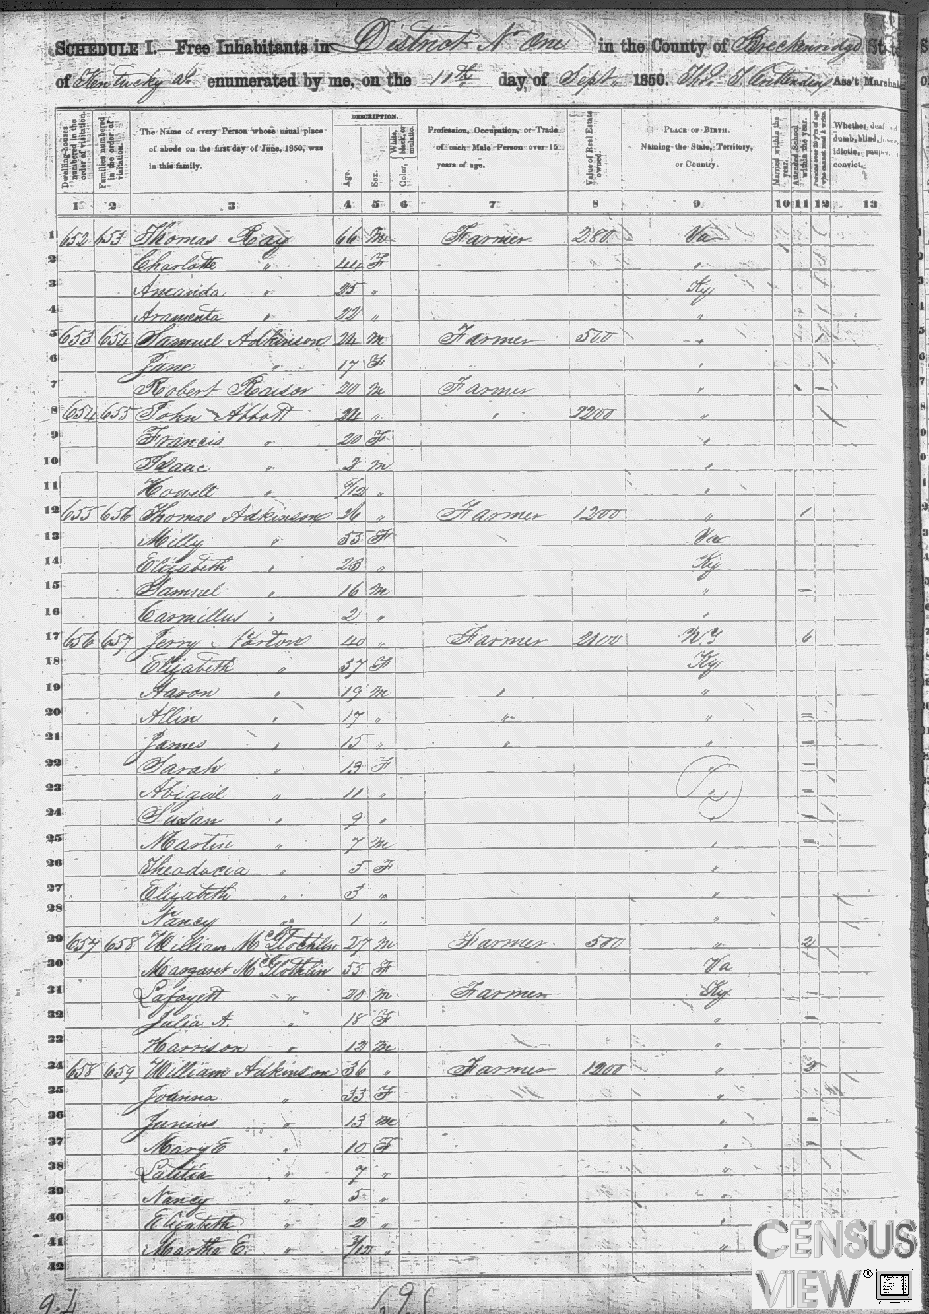 SCHEDULE I.—Free Inhabitants in District No One in the County of Breckenridge State
of Kentucky enumerated by me, on the 10th day of Sept. 1850. Ass't Marshal
Dwelling-houses numbered in the order of visitation.
Families numbered in the order of visitation.
The Name of every Person whose usual place of abode on the first day of June, 1850, was in this family.
DESCRIPTION.
Age.
Sex.
Color, White, black, or mulatto.
Profession, Occupation, or Trade of each Male Person over 15 years of age.
Value of Real Estate owned.
PLACE OF BIRTH. Naming the State, Territory, or Country.
Married within the year.
Attended School within the year.
Whether deaf and dumb, blind, idiotic, pauper, convict.
1 2 3 4 5 6 7 8 9 10 11 12 13
1 652 653 Thomas Ray 66 M Farmer 280 Va
2 Charlotte " 44 F " "
3 Amanda " 25 " Ky
4 Araminta " 22 " "
5 653 654 Samuel Adkinson 24 M Farmer 500 " 1
6 Jane " 17 F "
7 Robert Raisor 20 M Farmer " 1 1
8 654 655 John Abbott 24 " " 2200 "
9 Francis " 20 F "
10 Isaac " 2 M "
11 Howell " 9/12 " "
12 655 656 Thomas Adkinson 26 " Farmer 1200 " 1
13 Milly " 55 F Va
14 Elizabeth " 23 " Ky
15 Samuel " 16 M "
16 Carmillus " 2 " "
17 656 657 Jerry Norton 40 " Farmer 2100 N.Y 6
18 Elizabeth " 37 F Ky
19 Aaron " 19 M " "
20 Allin " 17 " " "
21 James " 15 " " "
22 Sarah " 13 F "
23 Abigail " 11 " "
24 Susan " 9 "
25 Martin " 7 M "
26 Theodocia " 5 F "
27 Elizabeth " 3 " "
28 Nancy " 1 " "
29 657 658 William McGlothlin 27 M Farmer 500 " 2
30 Margaret McGlothlin 55 F Va
31 Lafayett " 20 M Farmer Ky
32 Julia A. " 18 F "
33 Harrison " 12 M "
34 658 659 William Adkinson 36 " Farmer 1200 " 2
35 Joanna " 33 F "
36 Junius " 13 M "
37 Mary E " 10 F "
38 Latitia " 7 " "
39 Nancy " 5 " "
40 Elizabeth " 2 " "
41 Martha E. " "
42
CENSUS
VIEW®